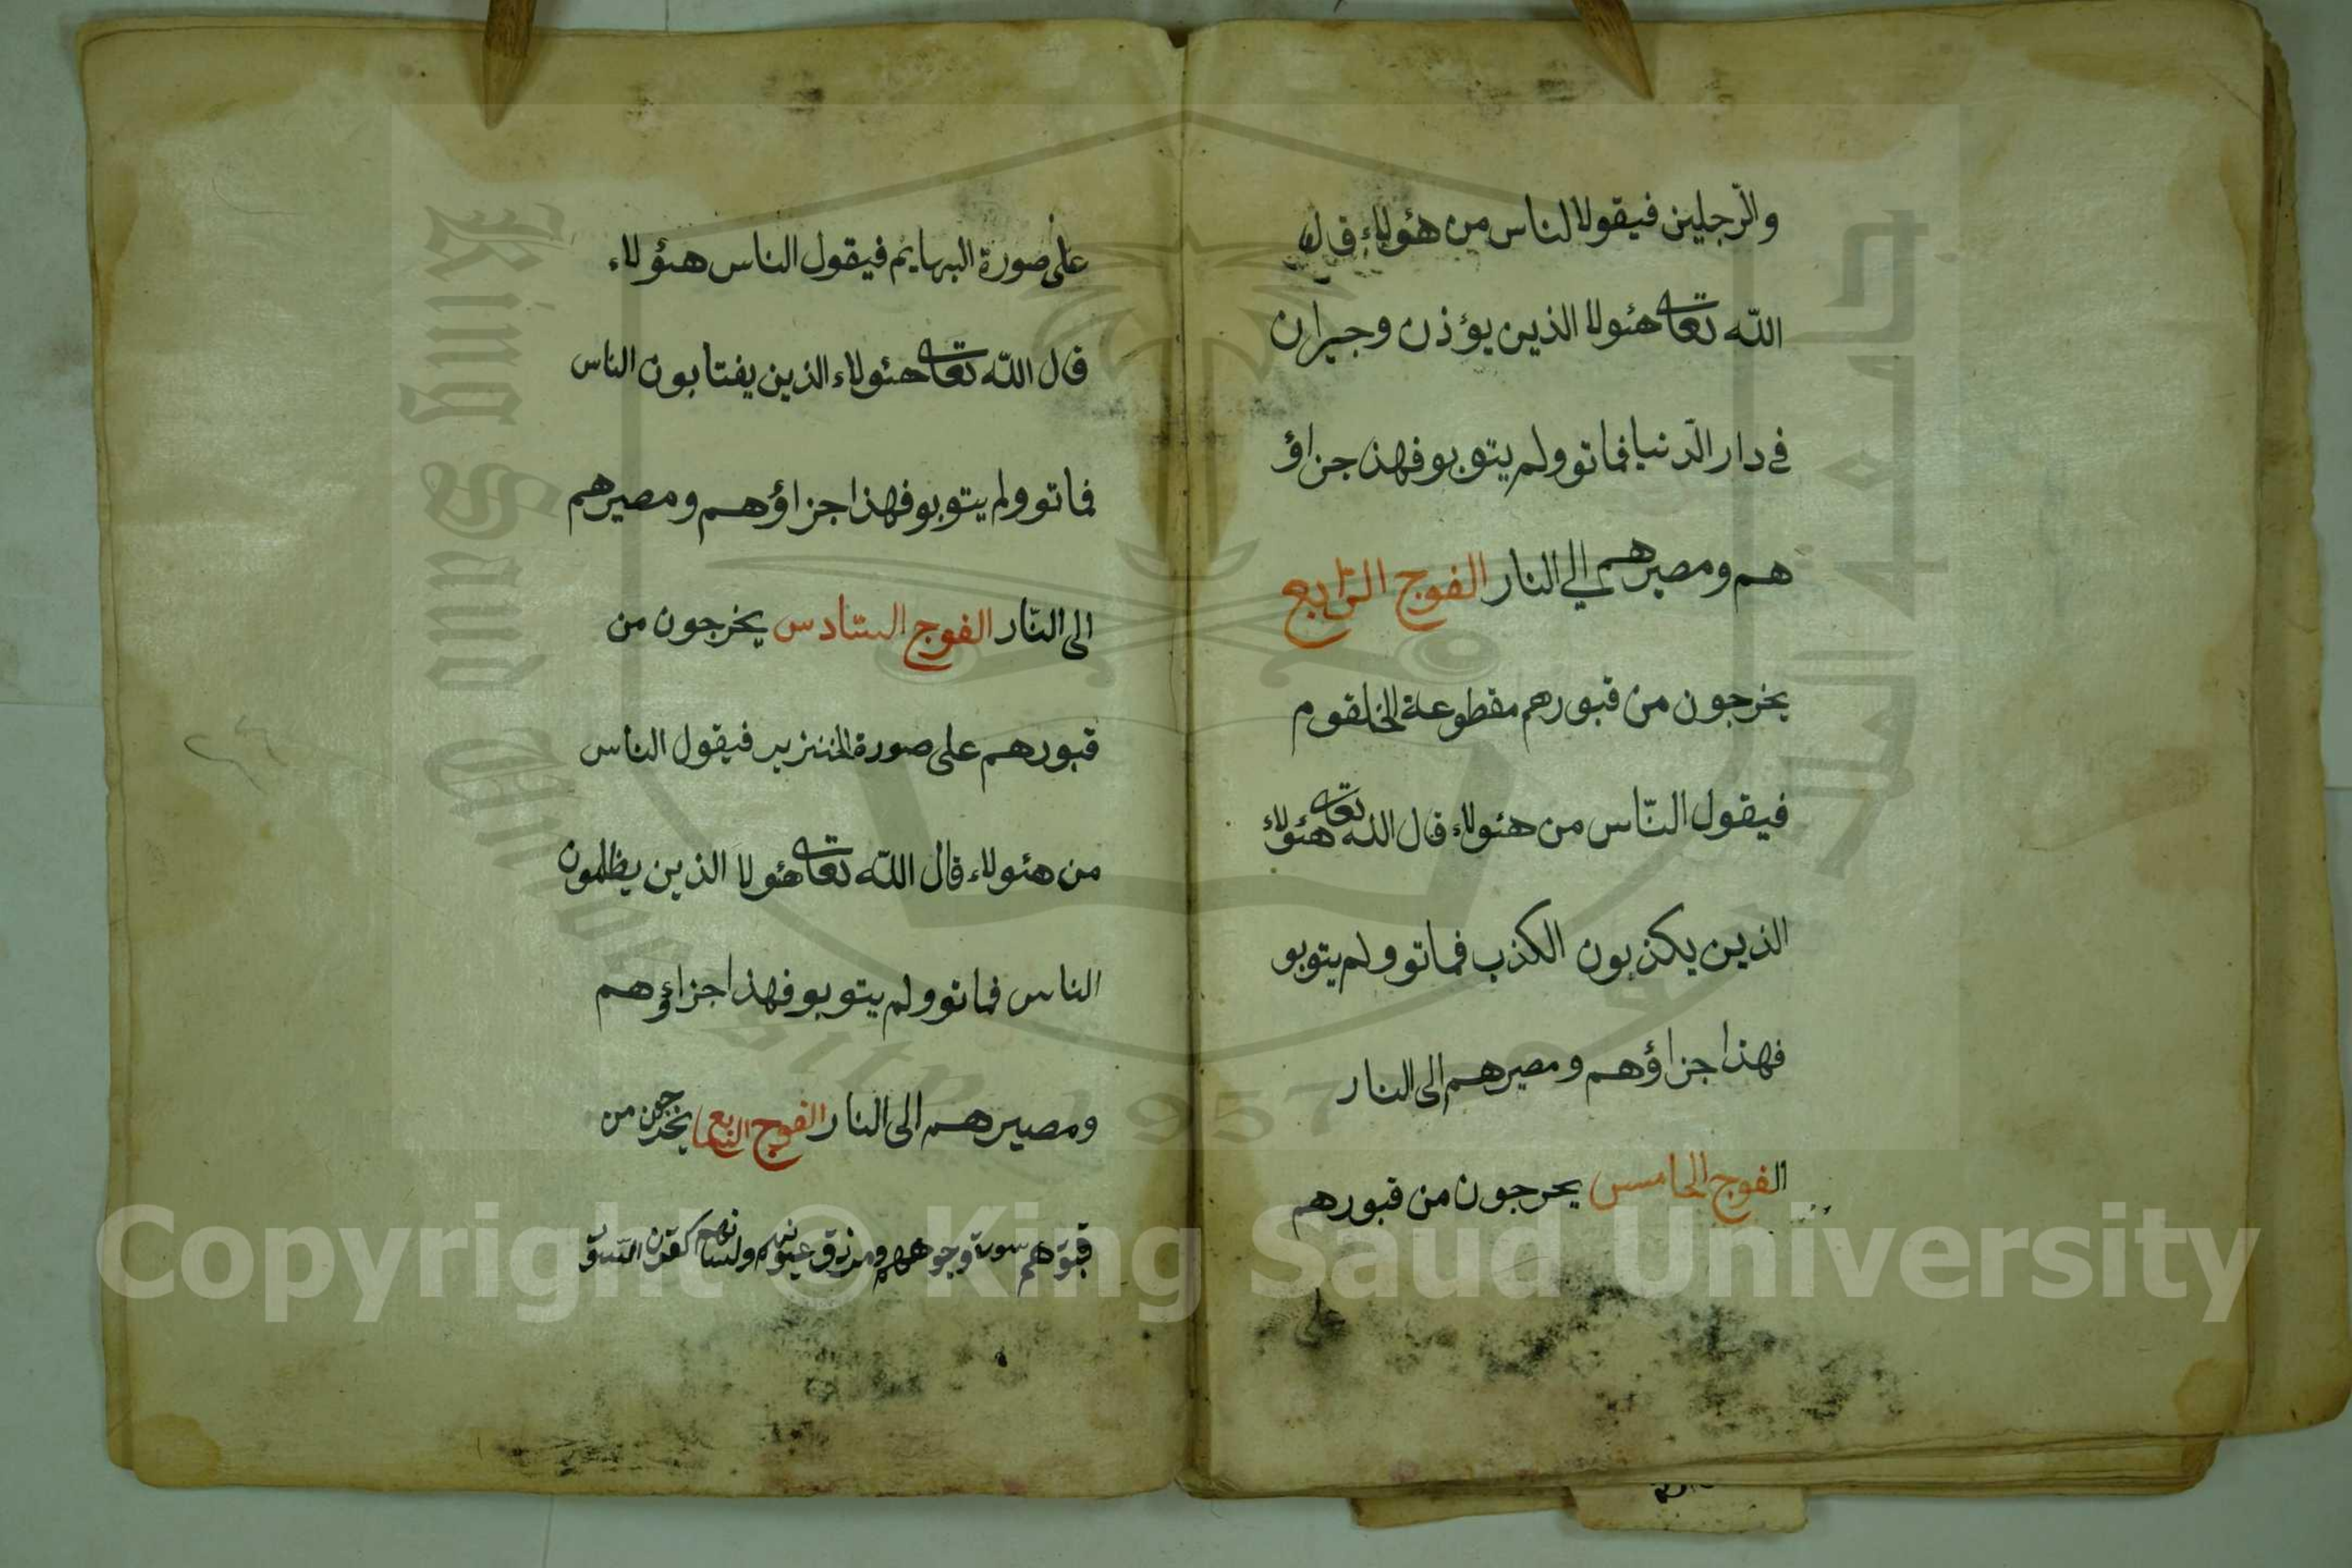 والرّجلين فيقولا لناس من هئولاء قال
اللّه تعا هئولا الذين يؤذن وجيران
في دار الدّنيا فماتو ولم يتوبو فهذ جزاؤ
هم ومصيرهم الي النار الفوج الرّابع
يخرجون من قبورهم مقطوعة الخلقوم
فيقول النّاس من هئولاء قال اللّه تعا هئولاء
الذين يكذبون الكذب فماتو ولم يتوبو
فهذا جزاؤهم ومصيرهم الى النار
الفوج الخامس يحرجون من قبورهم
على
على صورة البهايم فيقول الناس هئولاء
قال اللّه تعا هئولاء الذين يفتابون الناس
فماتو ولم يتوبو فهذا جزاؤهم ومصيرهم
الى النّار الفوج السّادس يخرجون من
قبورهم على صورة الخنزير فيقول الناس
من هئولاء قال اللّه تعا هئولا الذين يظلمون
الناس فماتو ولم يتوبو فهذا جزاؤهم
ومصيرهم الى النار الفوج يخرجون من
وجوههم
Copyright © King Saud University
King Saud University
1957
جامعة الملك سعود